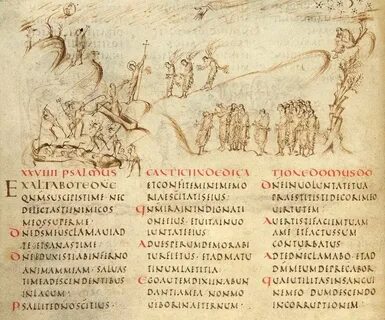 XXVIIII PSALMUS CANTICI IN DEDICATIONE DOMUS DD
EXALTABO TE DNE
QNM SUSCEPISTI ME NEC
DELECTASTI INIMICOS
MEOS SUPER ME
DNE DS MEUS CLAMAUI AD
TE ET SANASTI ME
DNE EDUXISTI AB INFERNO
ANIMAM MEAM SALUAS
TI ME A DESCENDENTIBUS
IN LACUM
PSALLITE DNO SCI EIUS
ET CONFITEMINI MEMO
RIAE SCITATIS EIUS
QNM IRA IN INDIGNATI
ONE EIUS ET UITA IN UO
LUNTATE EIUS
AD UESPERUM DEMORABI
TUR FLETUS ET AD MATU
TINUM LAETITIA
EGO AUTEM DIXI IN ABUN
DANTIA MEA NON MO
UEBOR IN AETERNUM
DNE IN UOLUNTATE TUA
PRAESTITISTI DECORI MEO
UIRTUTEM
AUERTISTI FACIEM TUAM
A ME ET FACTUS SUM
CONTURBATUS
AD TE DNE CLAMABO ET AD
DM MEUM DEPRECABOR
QUAE UTILITAS IN SANGUI
NE MEO DUM DESCENDO
IN CORRUPTIONEM